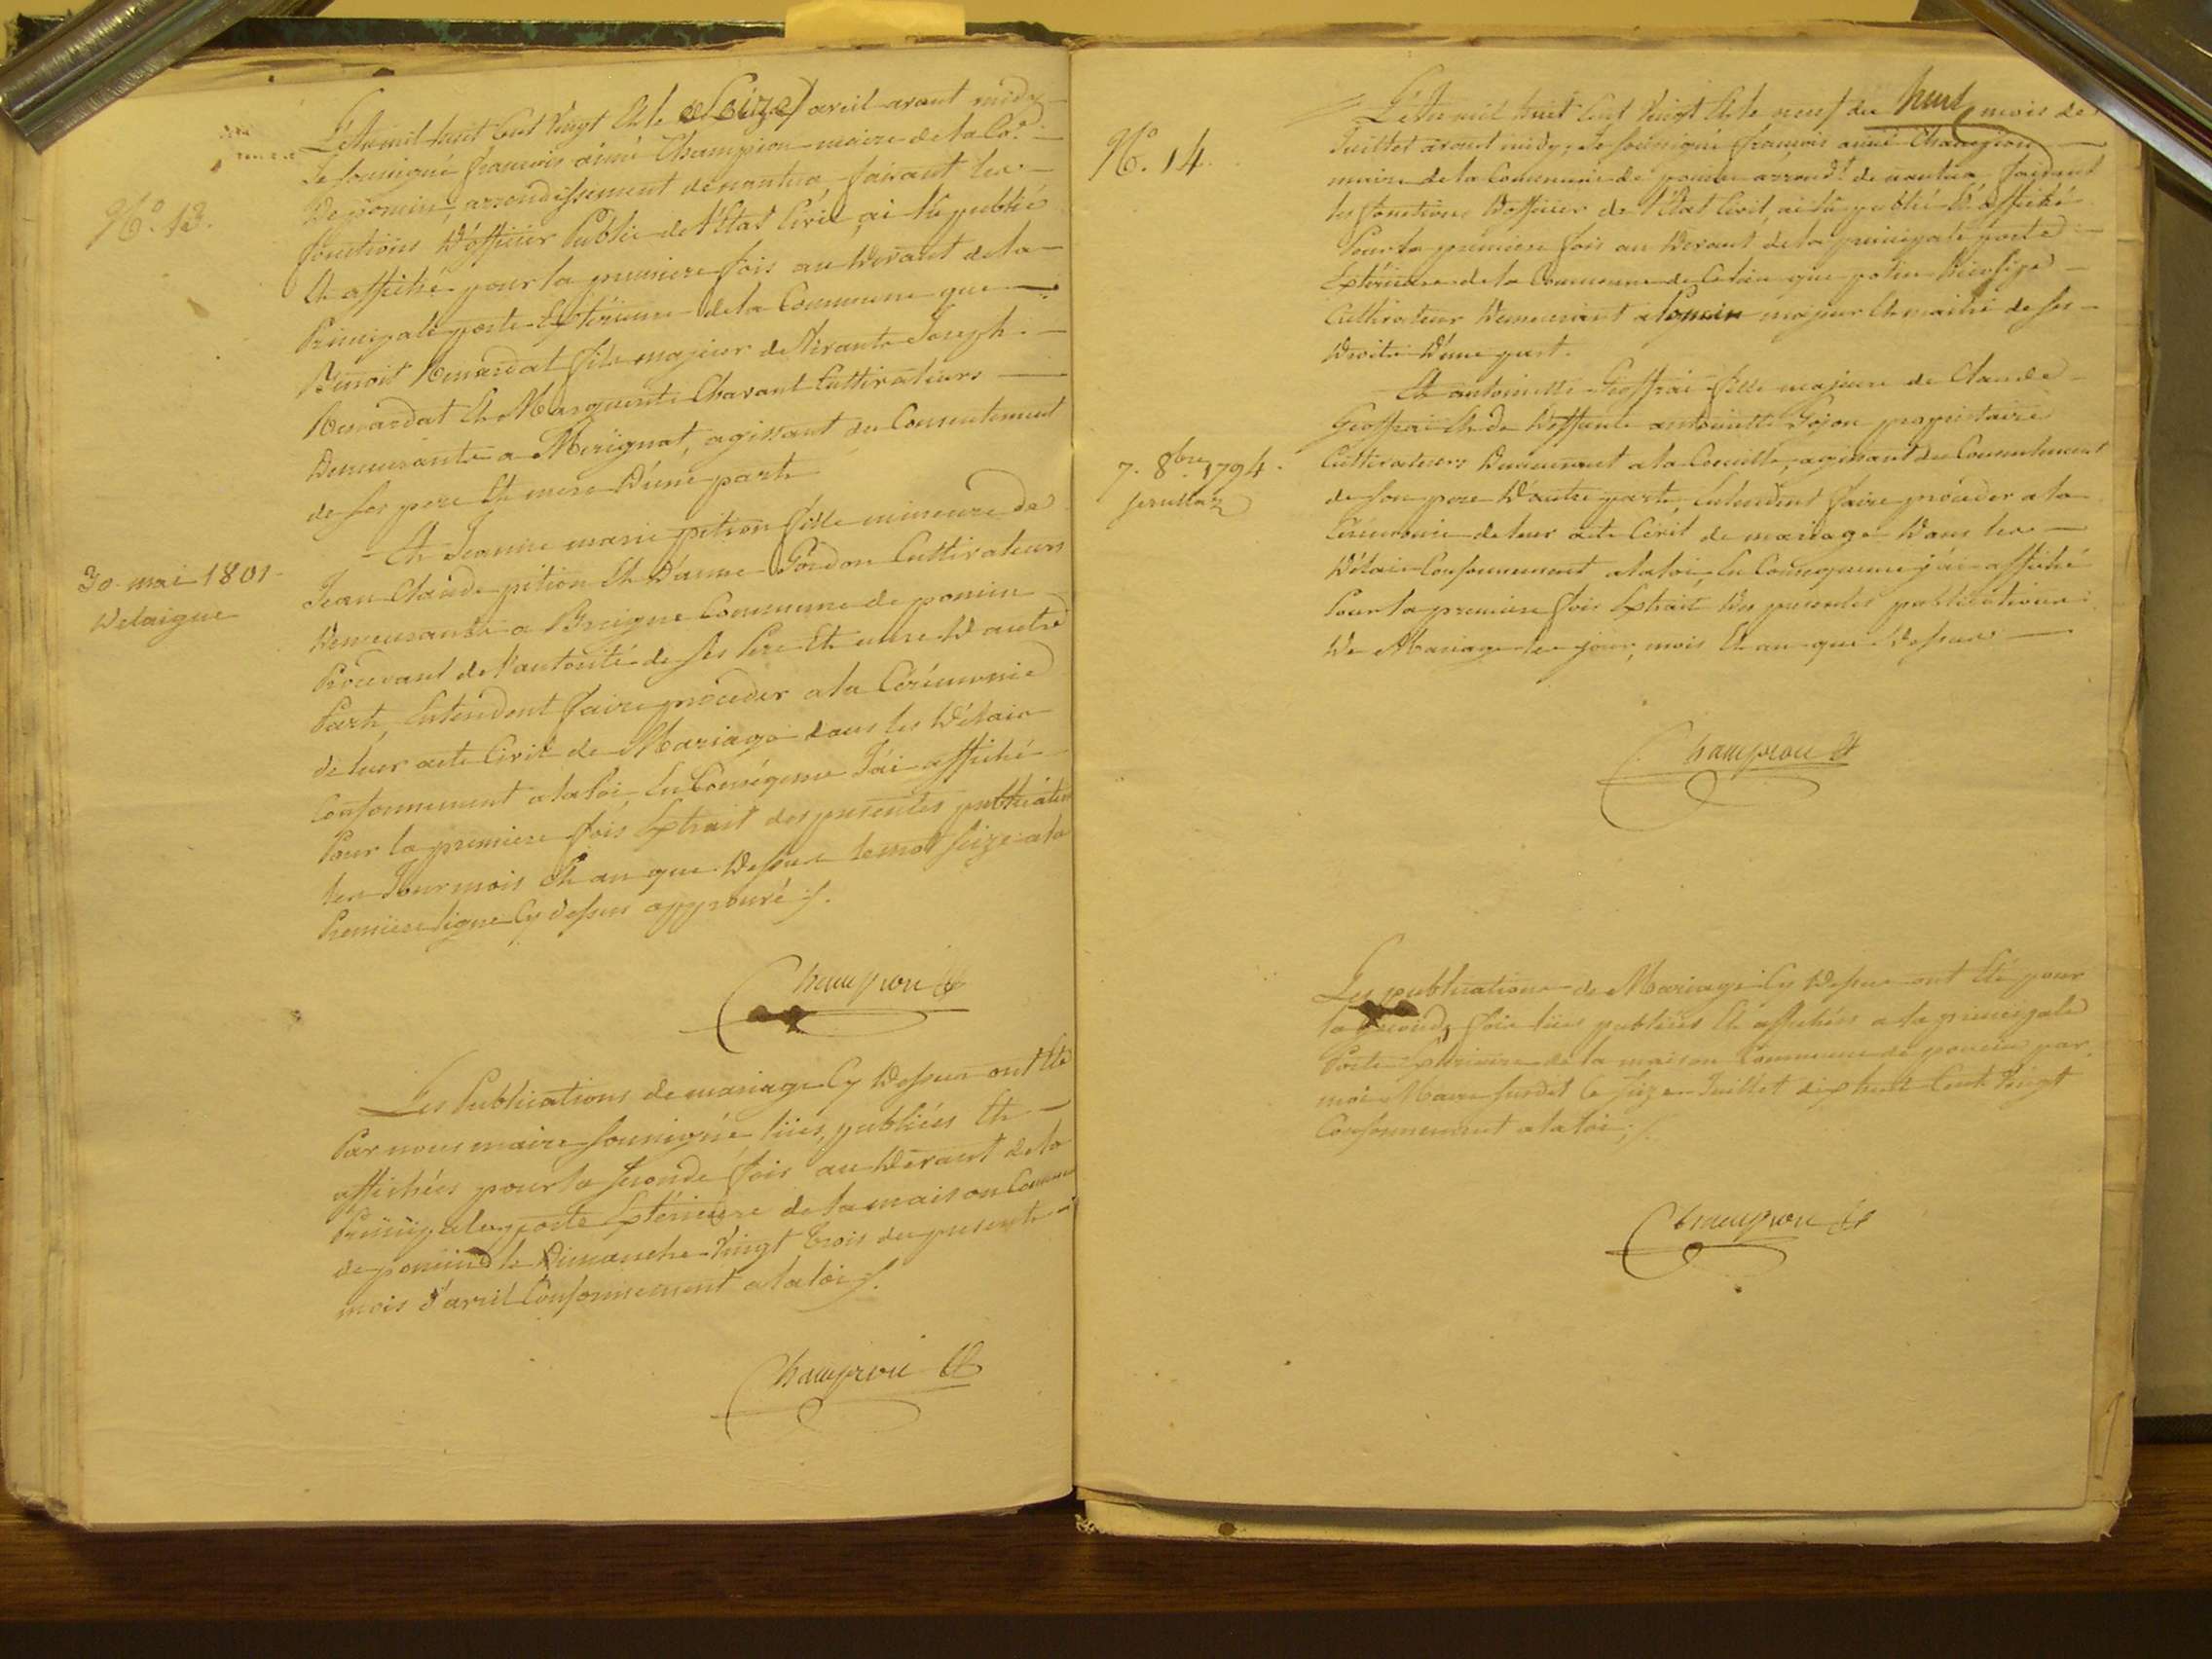 L'an mil huit Cent Vingt Et le Seize avril avant midy
Je soussigné françois aimé Champion maire de la Co.ne
De poncin, arrondissement denantua, faisant les
N.o 13.
fonctions D'officier Public de l'Etat Civil, ai lu publié
Et affiché pour la premiere fois au Devant de la
Principale porte Extérieure de la Commune que
Benoit Renardat fils majeur de Vivants Joseph
Renardat Et Marguerite Chavant Cultivateurs
Demeurants a Merignat, agissant du Consentement
de ses pere Et mere D'une part
Et Jeanne marie pition fille mineure de
30 mai 1801
Delaigue
Jean Claude pition Et D'anne Gordon Cultivateurs
Demeurants a Breigne Commune de poncin
Procedant de l'autorité de ses Pere Et mere D'autre
Part, Entendent faire procéder a la Cérémonie
de leur acte Civil de Mariage dans les Délais
Conformement a la loi En Conséquence J'ai affiché
Pour la premiere fois Extrait des presentes publications
les Jour mois Et an que Dessus le mot seize a la
Premiere ligne Cy dessus approuvé ./.
Champion
Les Publications de mariage Cy Dessus ont Eté
Par nous maire soussigné lües, publiées Et
affichées pour la seconde fois au Devant de la
Principale porte Extérieure de la maison Commune
de poncin le Dimanche Vingt trois du present
mois d'avril Conformement a la loi ./.
Champion
L'an mil huit Cent Vingt Et le neuf du huit mois de
N.o 14.
Juillet avant midy, Je soussigné françois aimé Champion
maire de la Commune de poncin arrond.t de nantua faisant
les fonctions D'officier de l'Etat Civil, ai lu publié Et affiché
Pour la première fois au Devant de la principale porte
Extérieure de la Commune de Ce lieu que
Cultivateur Demeurant a Poncin majeur Et maitre de ses
Droits D'une part.
Et antoinette Geoffrai fille majeure de Claude
Geoffrai Et de Deffunte antoinette Gojon proprietaire
7. 8bre 1794.
Cultivateurs Demeurant a la Coeuille, agissant du Consentement
de son pere D'autre part, Entendent faire procéder a la
Cérémonie de leur acte Civil de mariage Dans les
Délais Conformement a la loi, En Conséquence j'ai affiché
Pour la premiere fois Extrait Des presentes publications
De Mariage les jour, mois Et an que Dessus
Champion
Les publications de Mariage Cy Dessus ont Eté pour
la seconde fois lües publiées Et affichées a la principale
Porte Extérieure de la maison Commune de poncin par
moi Maire susdit Ce seize Juillet dix huit Cent Vingt
Conformement a la loi ./.
Champion